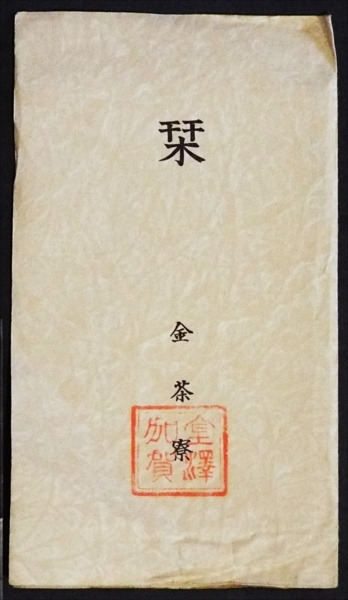 栞
金茶寮
金澤
加賀